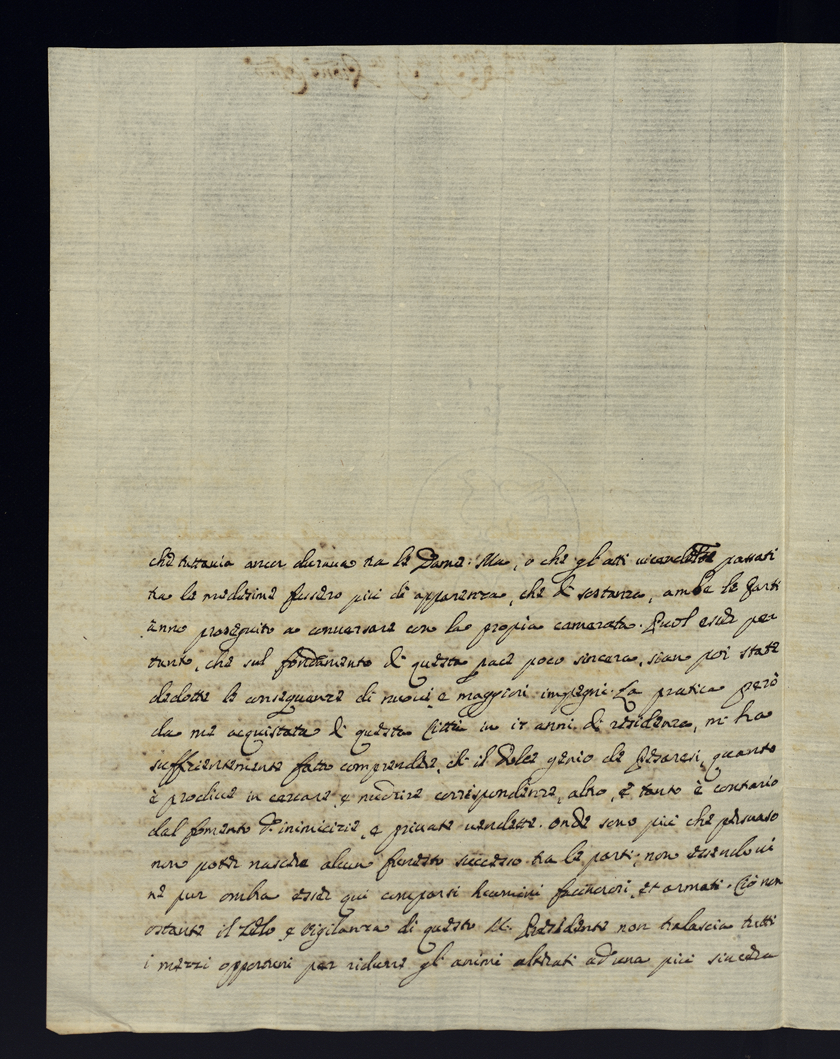 che tuttavia ancor durava tra le Dame. Ma, o che gl'atti passati
tra le medesime fussero più di apparenza, che di sostanza, ambe le Parti
anno proseguito a conversare con la propria camerata. Puol esser per
tanto, che sul fondamento di questa pace poco sincera, sian poi state
dedotte le conseguenze di nuovi, e maggiori impegni. La pratica però
da me acquistata di questa Città in anni di residenza, m'ha
sufficientemente fatto comprendere, ch'il genio de Pesaresi, quanto
è proclive in cercare, e nudrire corrispondenze, altro, e tanto è contrario
dal fomento d'inimicizie, e private vendette. Onde sono più che persuaso
non poter nascere alcun funesto successo tra le parti, non essendovi
ne pur ombra esser qui comparsi huomini facinorosi, et armati. Ciò non
ostante il Zelo, e vigilanza di questo M. Presidente non tralascia tutti
i mezzi opportuni per ridurre gl'animi alterati ad una più sincera